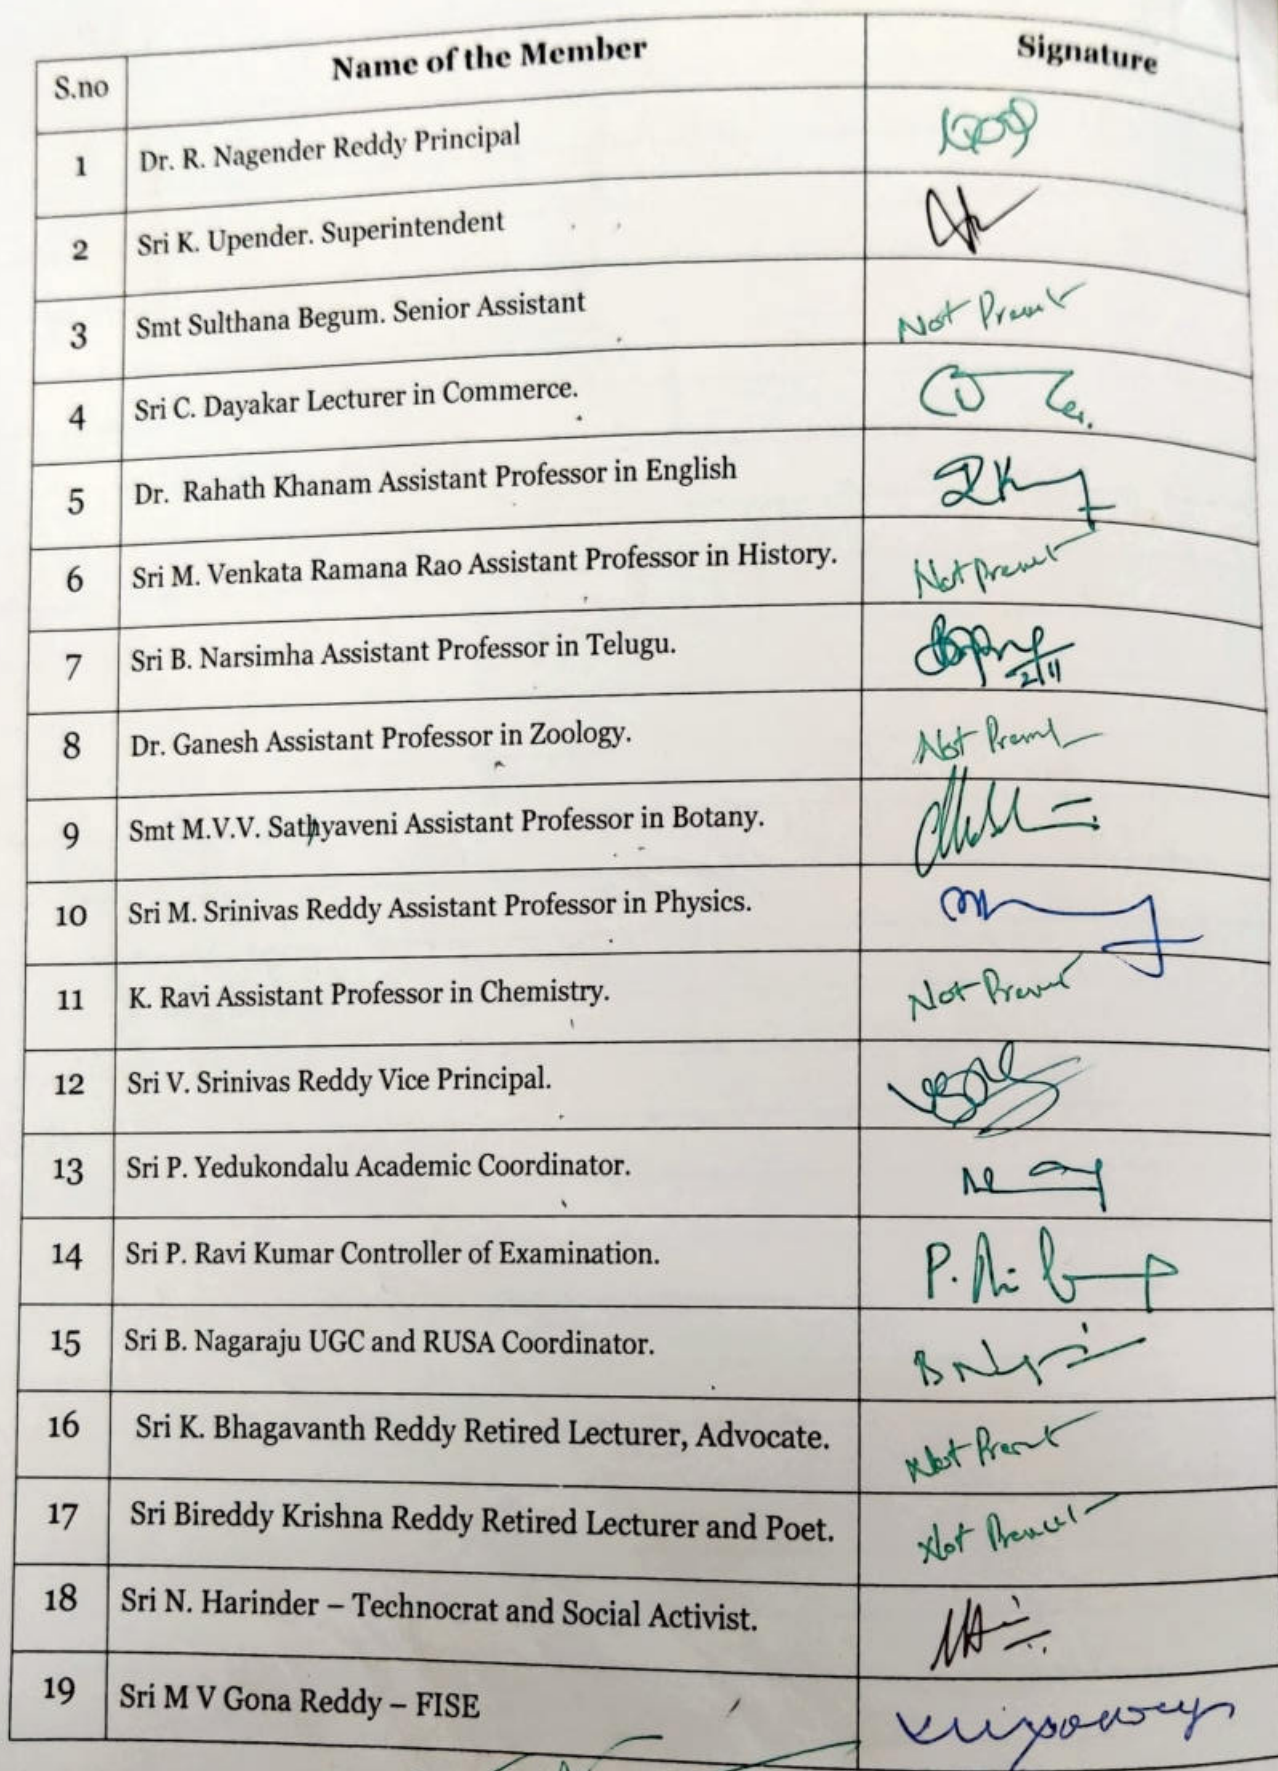 S.no Name of the Member Signature
1 Dr. R. Nagender Reddy Principal
2 Sri K. Upender. Superintendent
3 Smt Sulthana Begum. Senior Assistant Not Present
4 Sri C. Dayakar Lecturer in Commerce.
5 Dr. Rahath Khanam Assistant Professor in English
6 Sri M. Venkata Ramana Rao Assistant Professor in History. Not Present
7 Sri B. Narsimha Assistant Professor in Telugu. 2/11
8 Dr. Ganesh Assistant Professor in Zoology. Not Present
9 Smt M.V.V. Sathyaveni Assistant Professor in Botany.
10 Sri M. Srinivas Reddy Assistant Professor in Physics.
11 K. Ravi Assistant Professor in Chemistry. Not Present
12 Sri V. Srinivas Reddy Vice Principal.
13 Sri P. Yedukondalu Academic Coordinator.
14 Sri P. Ravi Kumar Controller of Examination.
15 Sri B. Nagaraju UGC and RUSA Coordinator.
16 Sri K. Bhagavanth Reddy Retired Lecturer, Advocate. Not Present
17 Sri Bireddy Krishna Reddy Retired Lecturer and Poet. Not Present
18 Sri N. Harinder – Technocrat and Social Activist.
19 Sri M V Gona Reddy – FISE